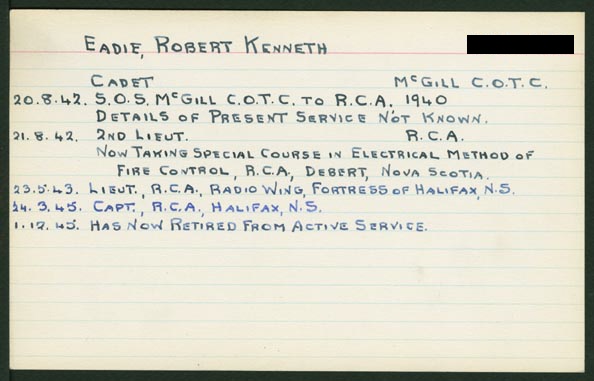 EADIE, ROBERT KENNETH
CADET McGILL C.O.T.C.
20.8.42. S.O.S. McGILL C.O.T.C. TO R.C.A. 1940
DETAILS OF PRESENT SERVICE NOT KNOWN.
21.8.42. 2ND LIEUT. R.C.A.
NOW TAKING SPECIAL COURSE IN ELECTRICAL METHOD OF
FIRE CONTROL, R.C.A., DEBERT, NOVA SCOTIA.
23.5.43. LIEUT., R.C.A., RADIO WING, FORTRESS OF HALIFAX, N.S.
24.3.45. CAPT., R.C.A., HALIFAX, N.S.
1.12.45. HAS NOW RETIRED FROM ACTIVE SERVICE.